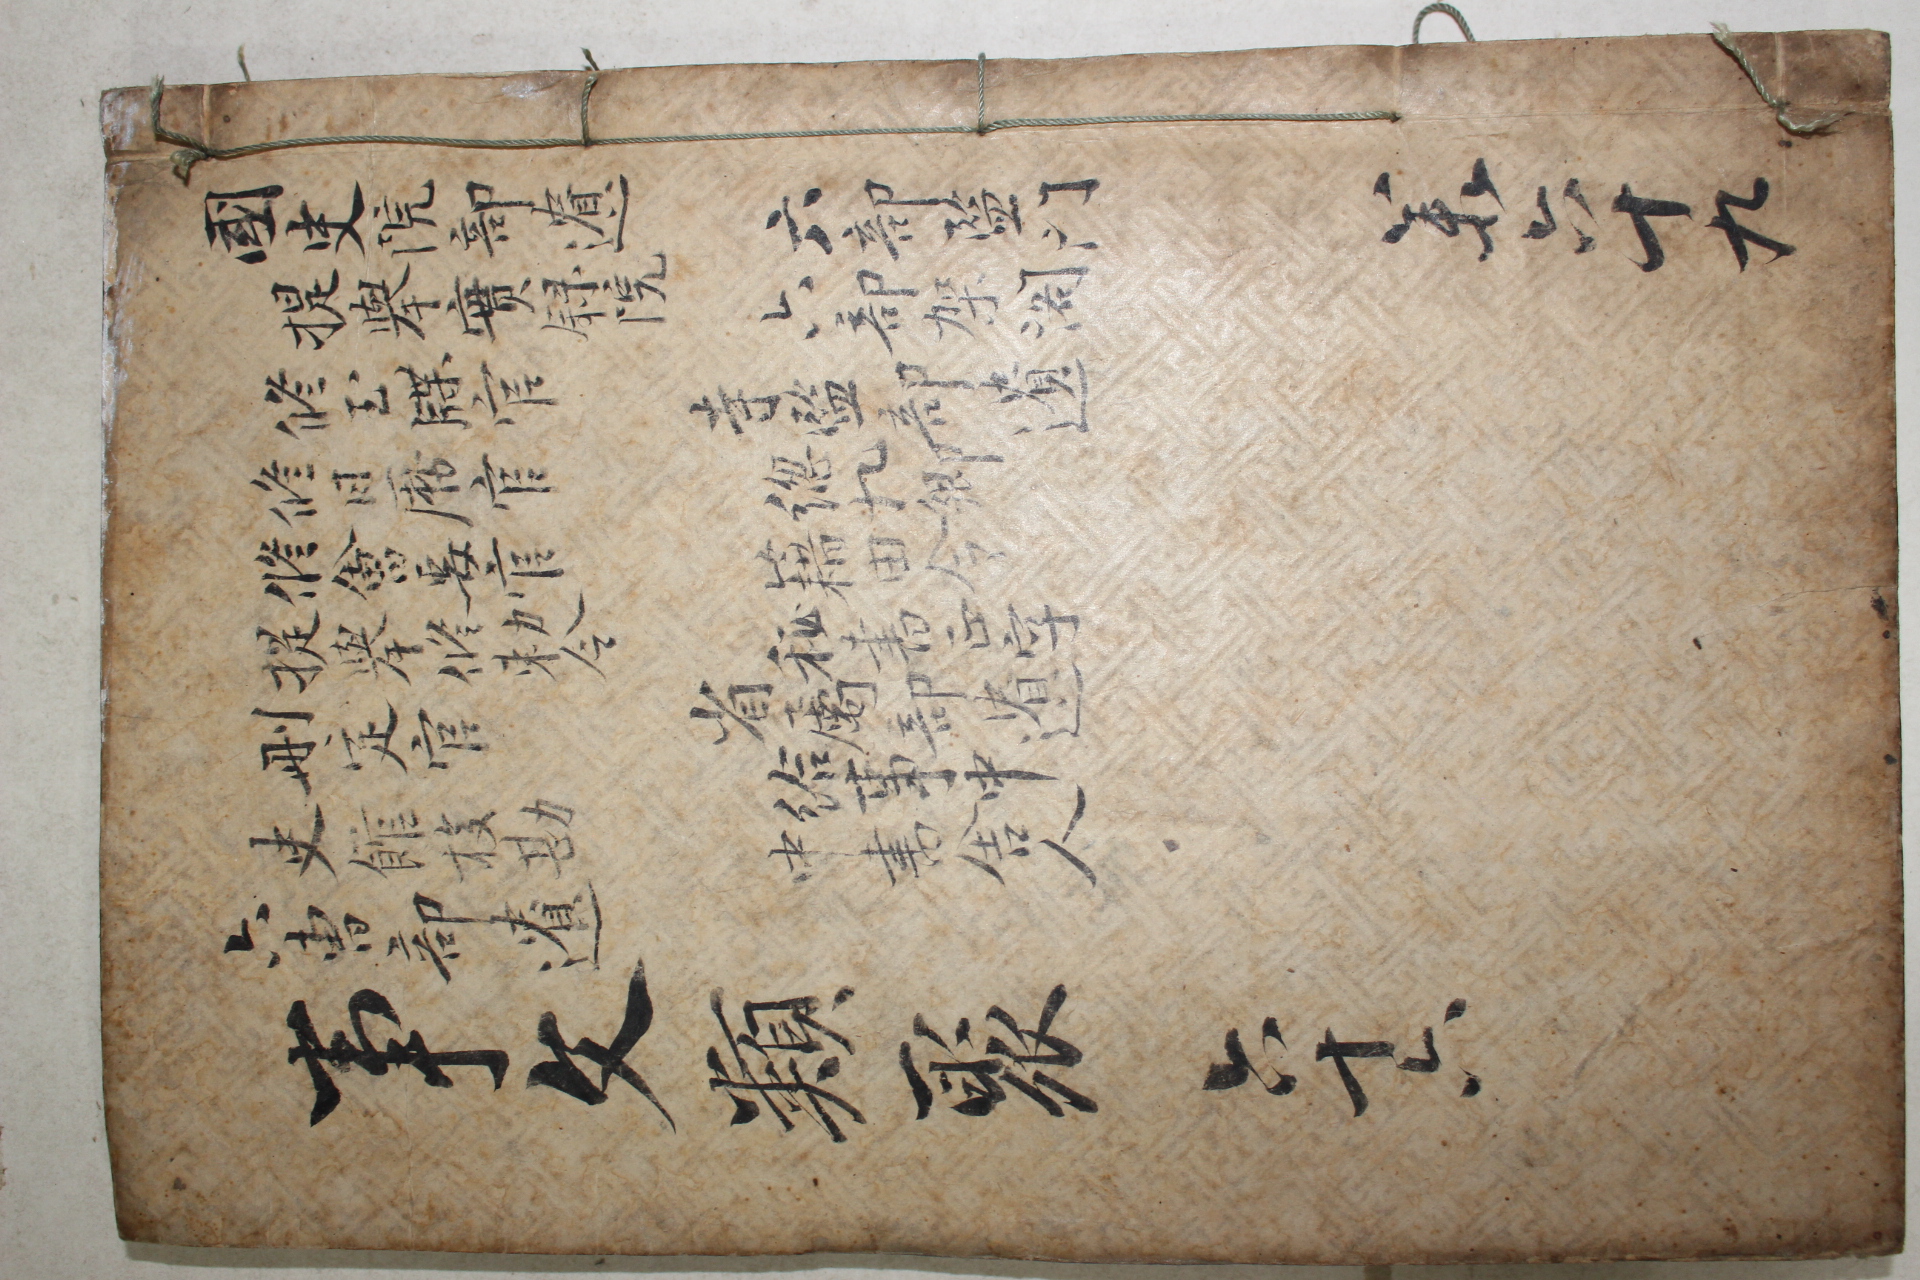 國史院部遺
提舉實録院
修玉牒官
修日曆官
修會要官
提舉修勅令
刪定官
史館校勘
六曹部遺
六部監门
六部架阁
寺監部遺
總九卿
籍田令
秘書正字
省屬部遺
給事中
中書舍人
事文類聚 六十六
共六十九